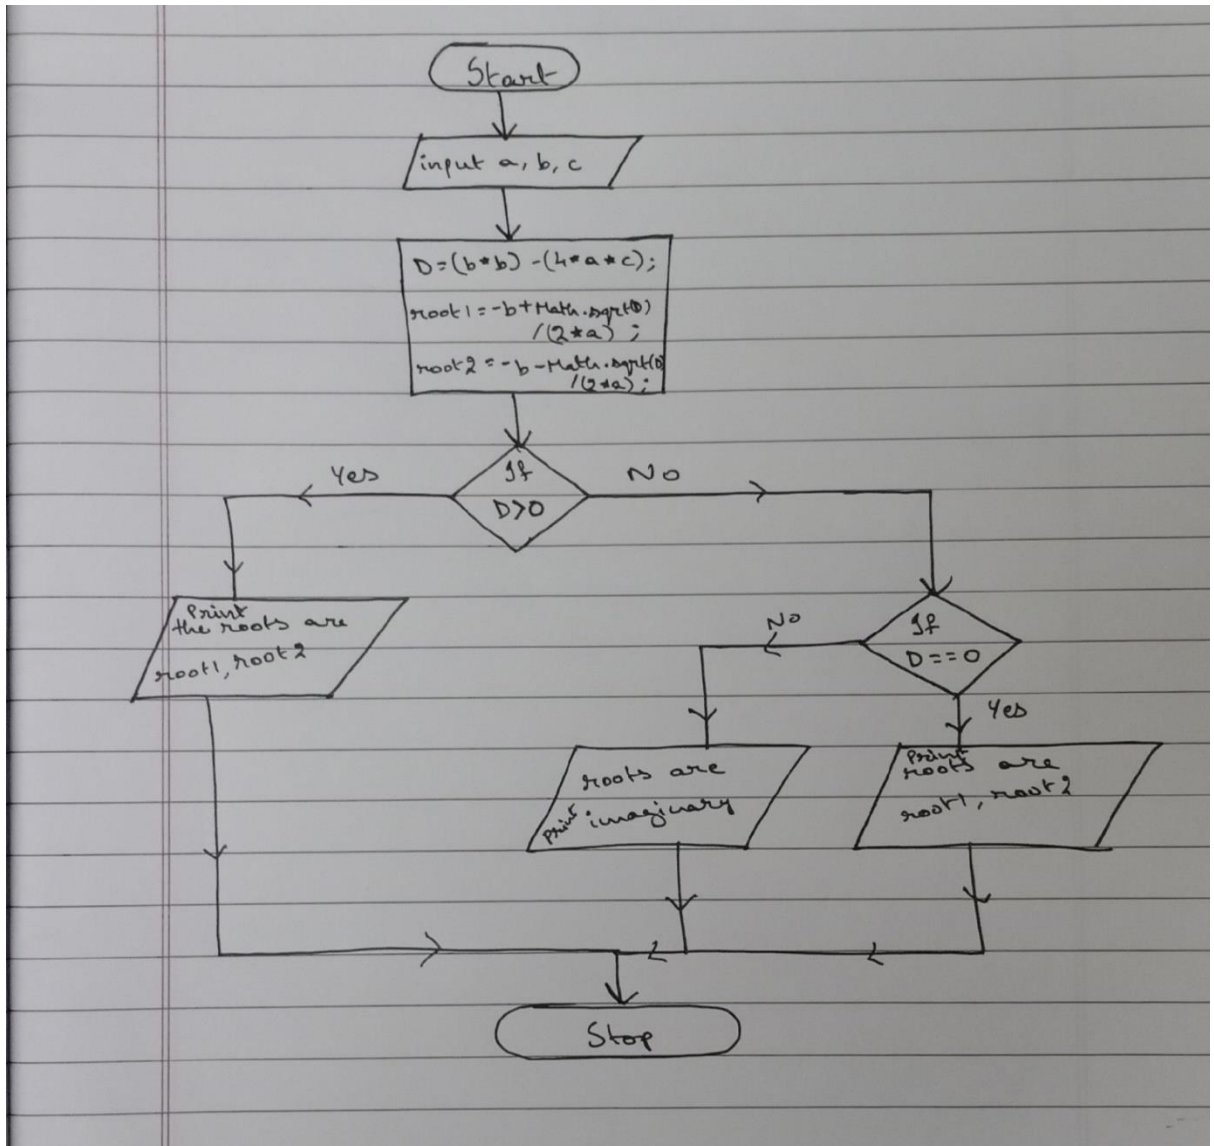 Start
input a, b, c
D=(b*b) -(4*a*c);
root1=-b+Math.sqrt(D)
/(2*a) ;
root2=-b-Math.sqrt(D)
/(2*a);
If
D>0
Yes
No
Print
the roots are
root1, root2
If
D==0
No
Yes
roots are
print imaginary
Print
roots are
root1, root2
Stop